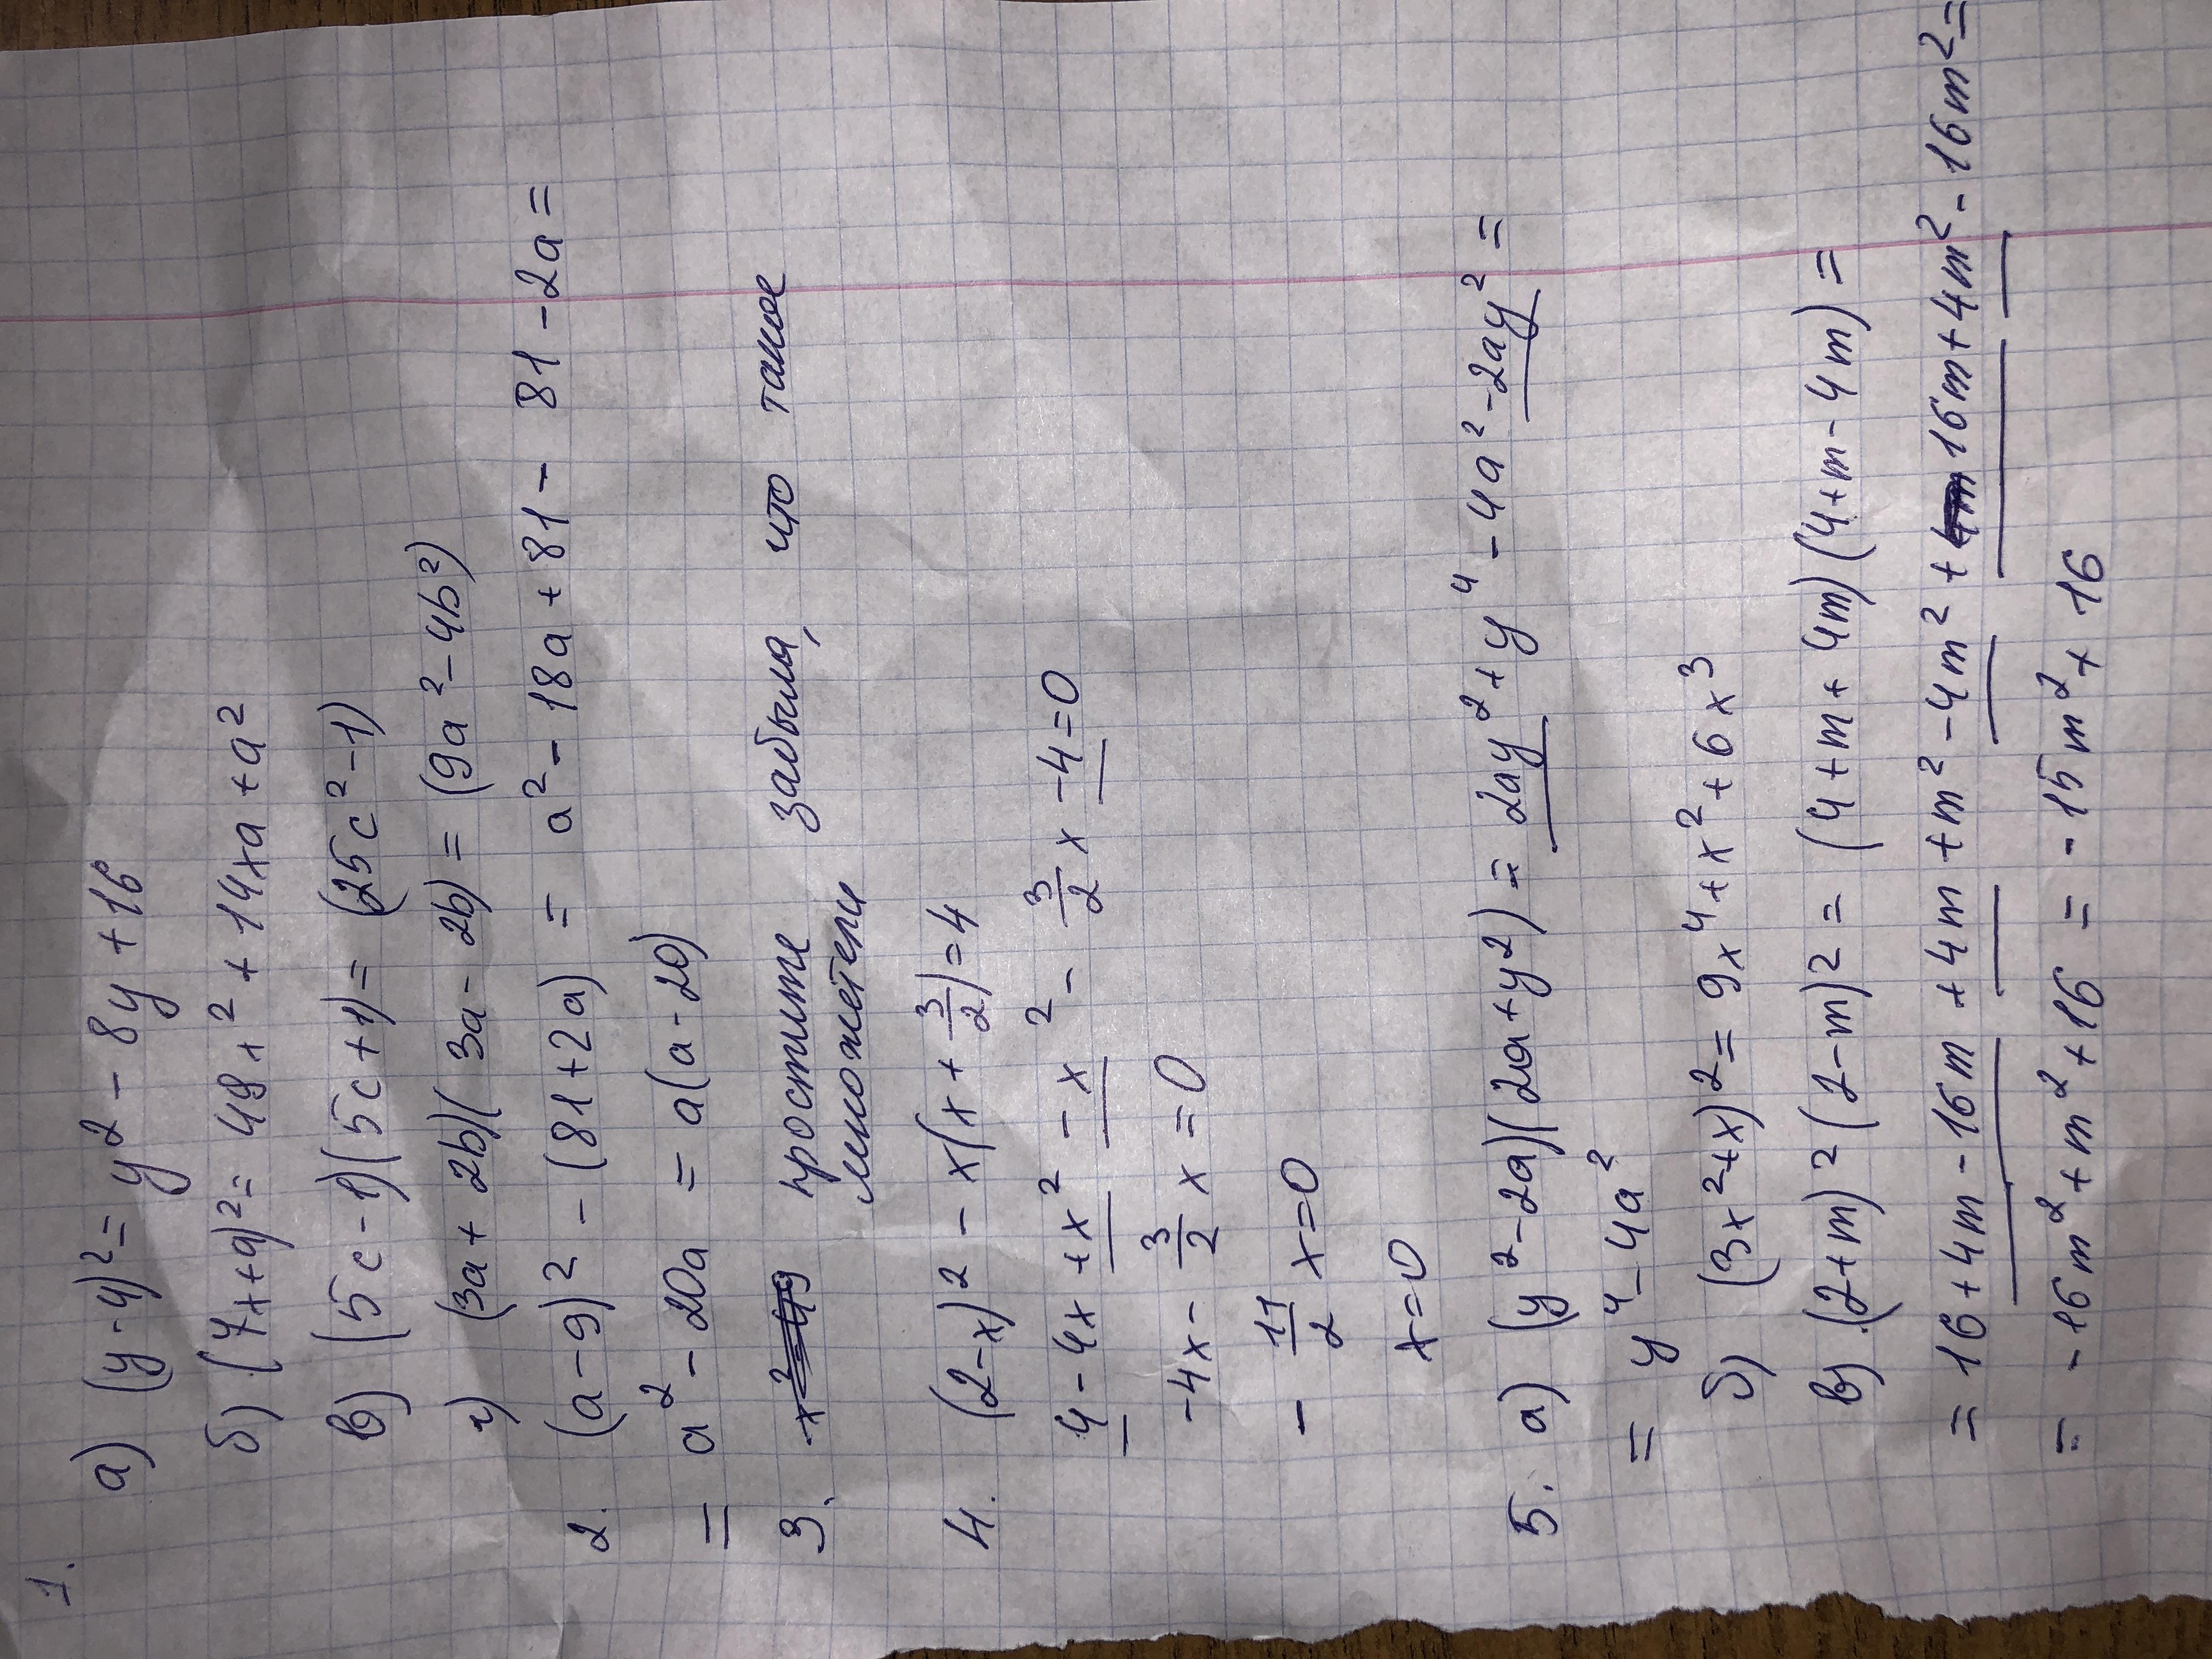 1.
а) (y-4)²= y² - 8y + 16
б) (7x+a)²= 49x² + 14xa + a²
в) (5c-1)(5c+1)= (25c²-1)
г) (3a+2b)(3a-2b)= (9a²-4b²)
2. (a-9)² - (81+2a) = a² - 18a + 81 - 81 - 2a =
= a² - 20a = a(a-20)
3. простите забыла, что такое
множетели
4. (2-x)² - x(x+3/2)=4
4-4x+x²-x²-3/2x-4=0
-4x-3/2x=0
-11/2x=0
x=0
5. а) (y²-2a)(2a+y²)= 2ay²+y⁴-4a²-2ay²=
= y⁴-4a²
б) (3x²+x)²= 9x⁴+x²+6x³
в) (2+m)²(2-m)²= (4+m+4m)(4+m-4m)=
= 16+4m-16m+4m+m²-4m²+16m+4m²-16m²=
= -16m²+m²+16 = -15m²+16